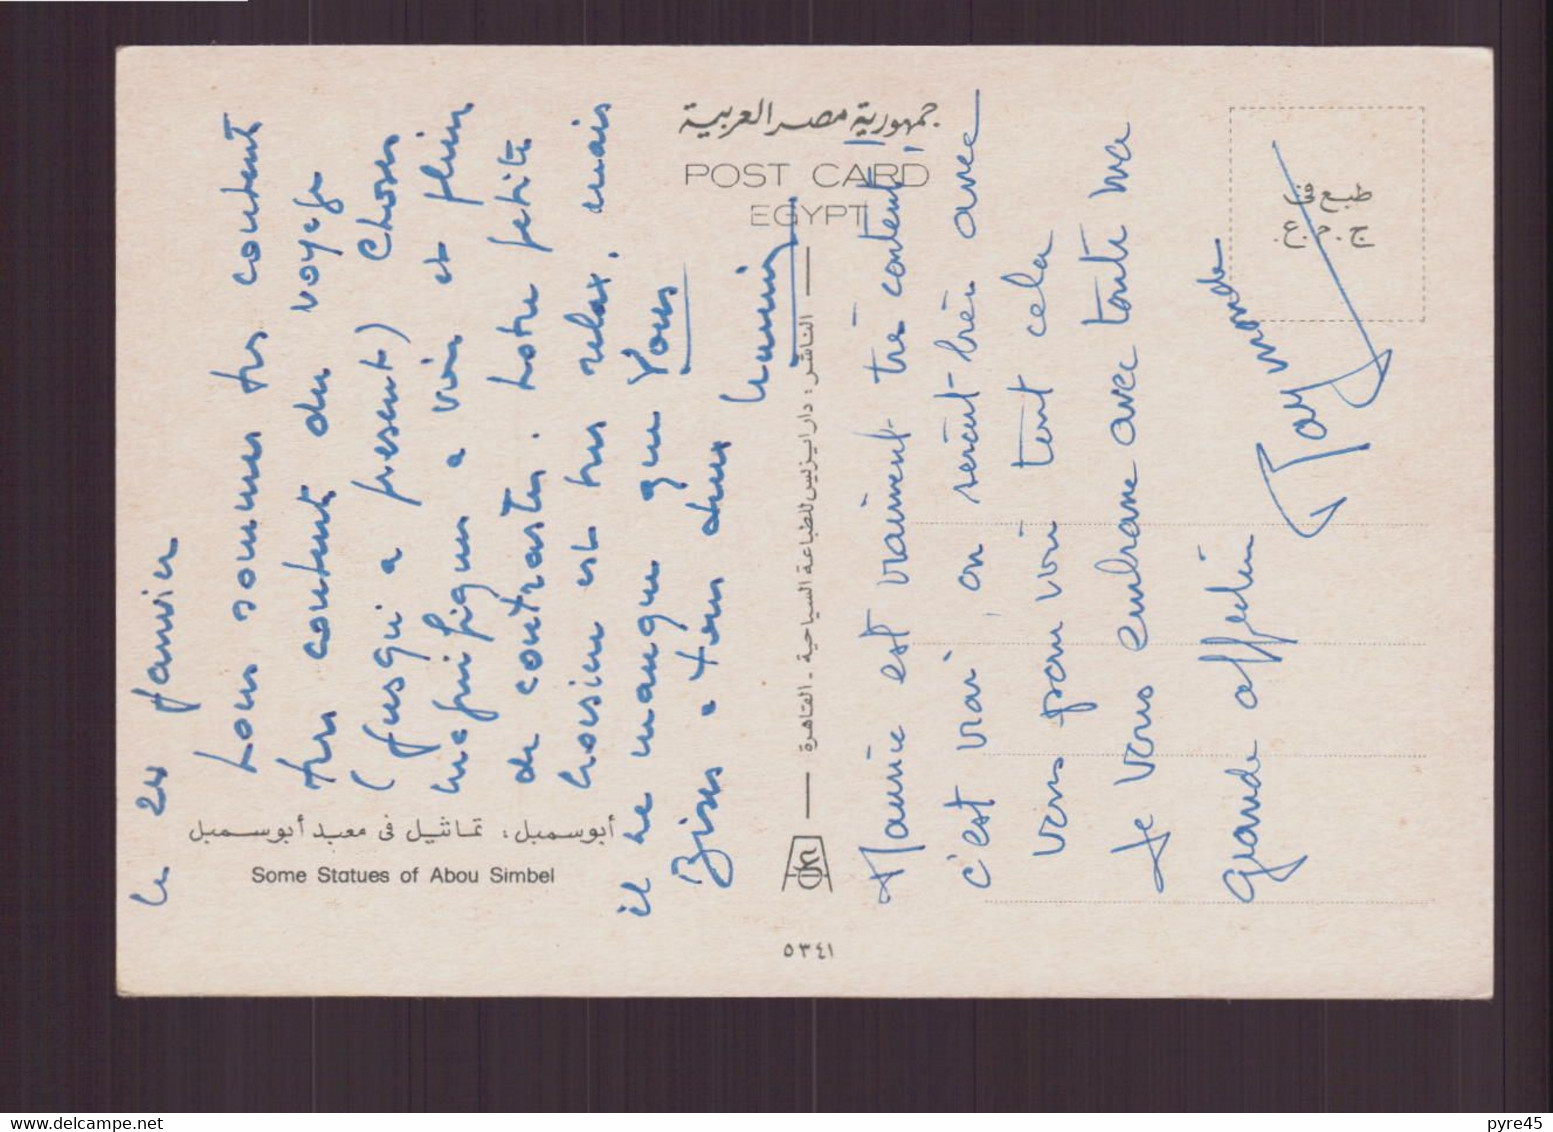 جمهورية مصر العربية
POST CARD
EGYPT
طبع فى
ج.م.ع.
le 24 Janvier
Nous sommes très content
très content du voyage
(jusqu'a present) choses
magnifiques a voir et plein
de contrastes. Notre petite
est très relax, mais
il ne manque que Vous
Bises a tous deux
Maurice
الناشر: دار ايزيس للطباعة السياحية - القاهرة
Maurice est vraiment très content!
c'est vrai, on serait bien avec
vous pour voir tout cela
Je vous embrasse avec toute ma
grande affection
Raymonde
أبوسمبل: تماثيل فى معبد أبوسمبل
Some Statues of Abou Simbel
٥٣٤١
pyre45